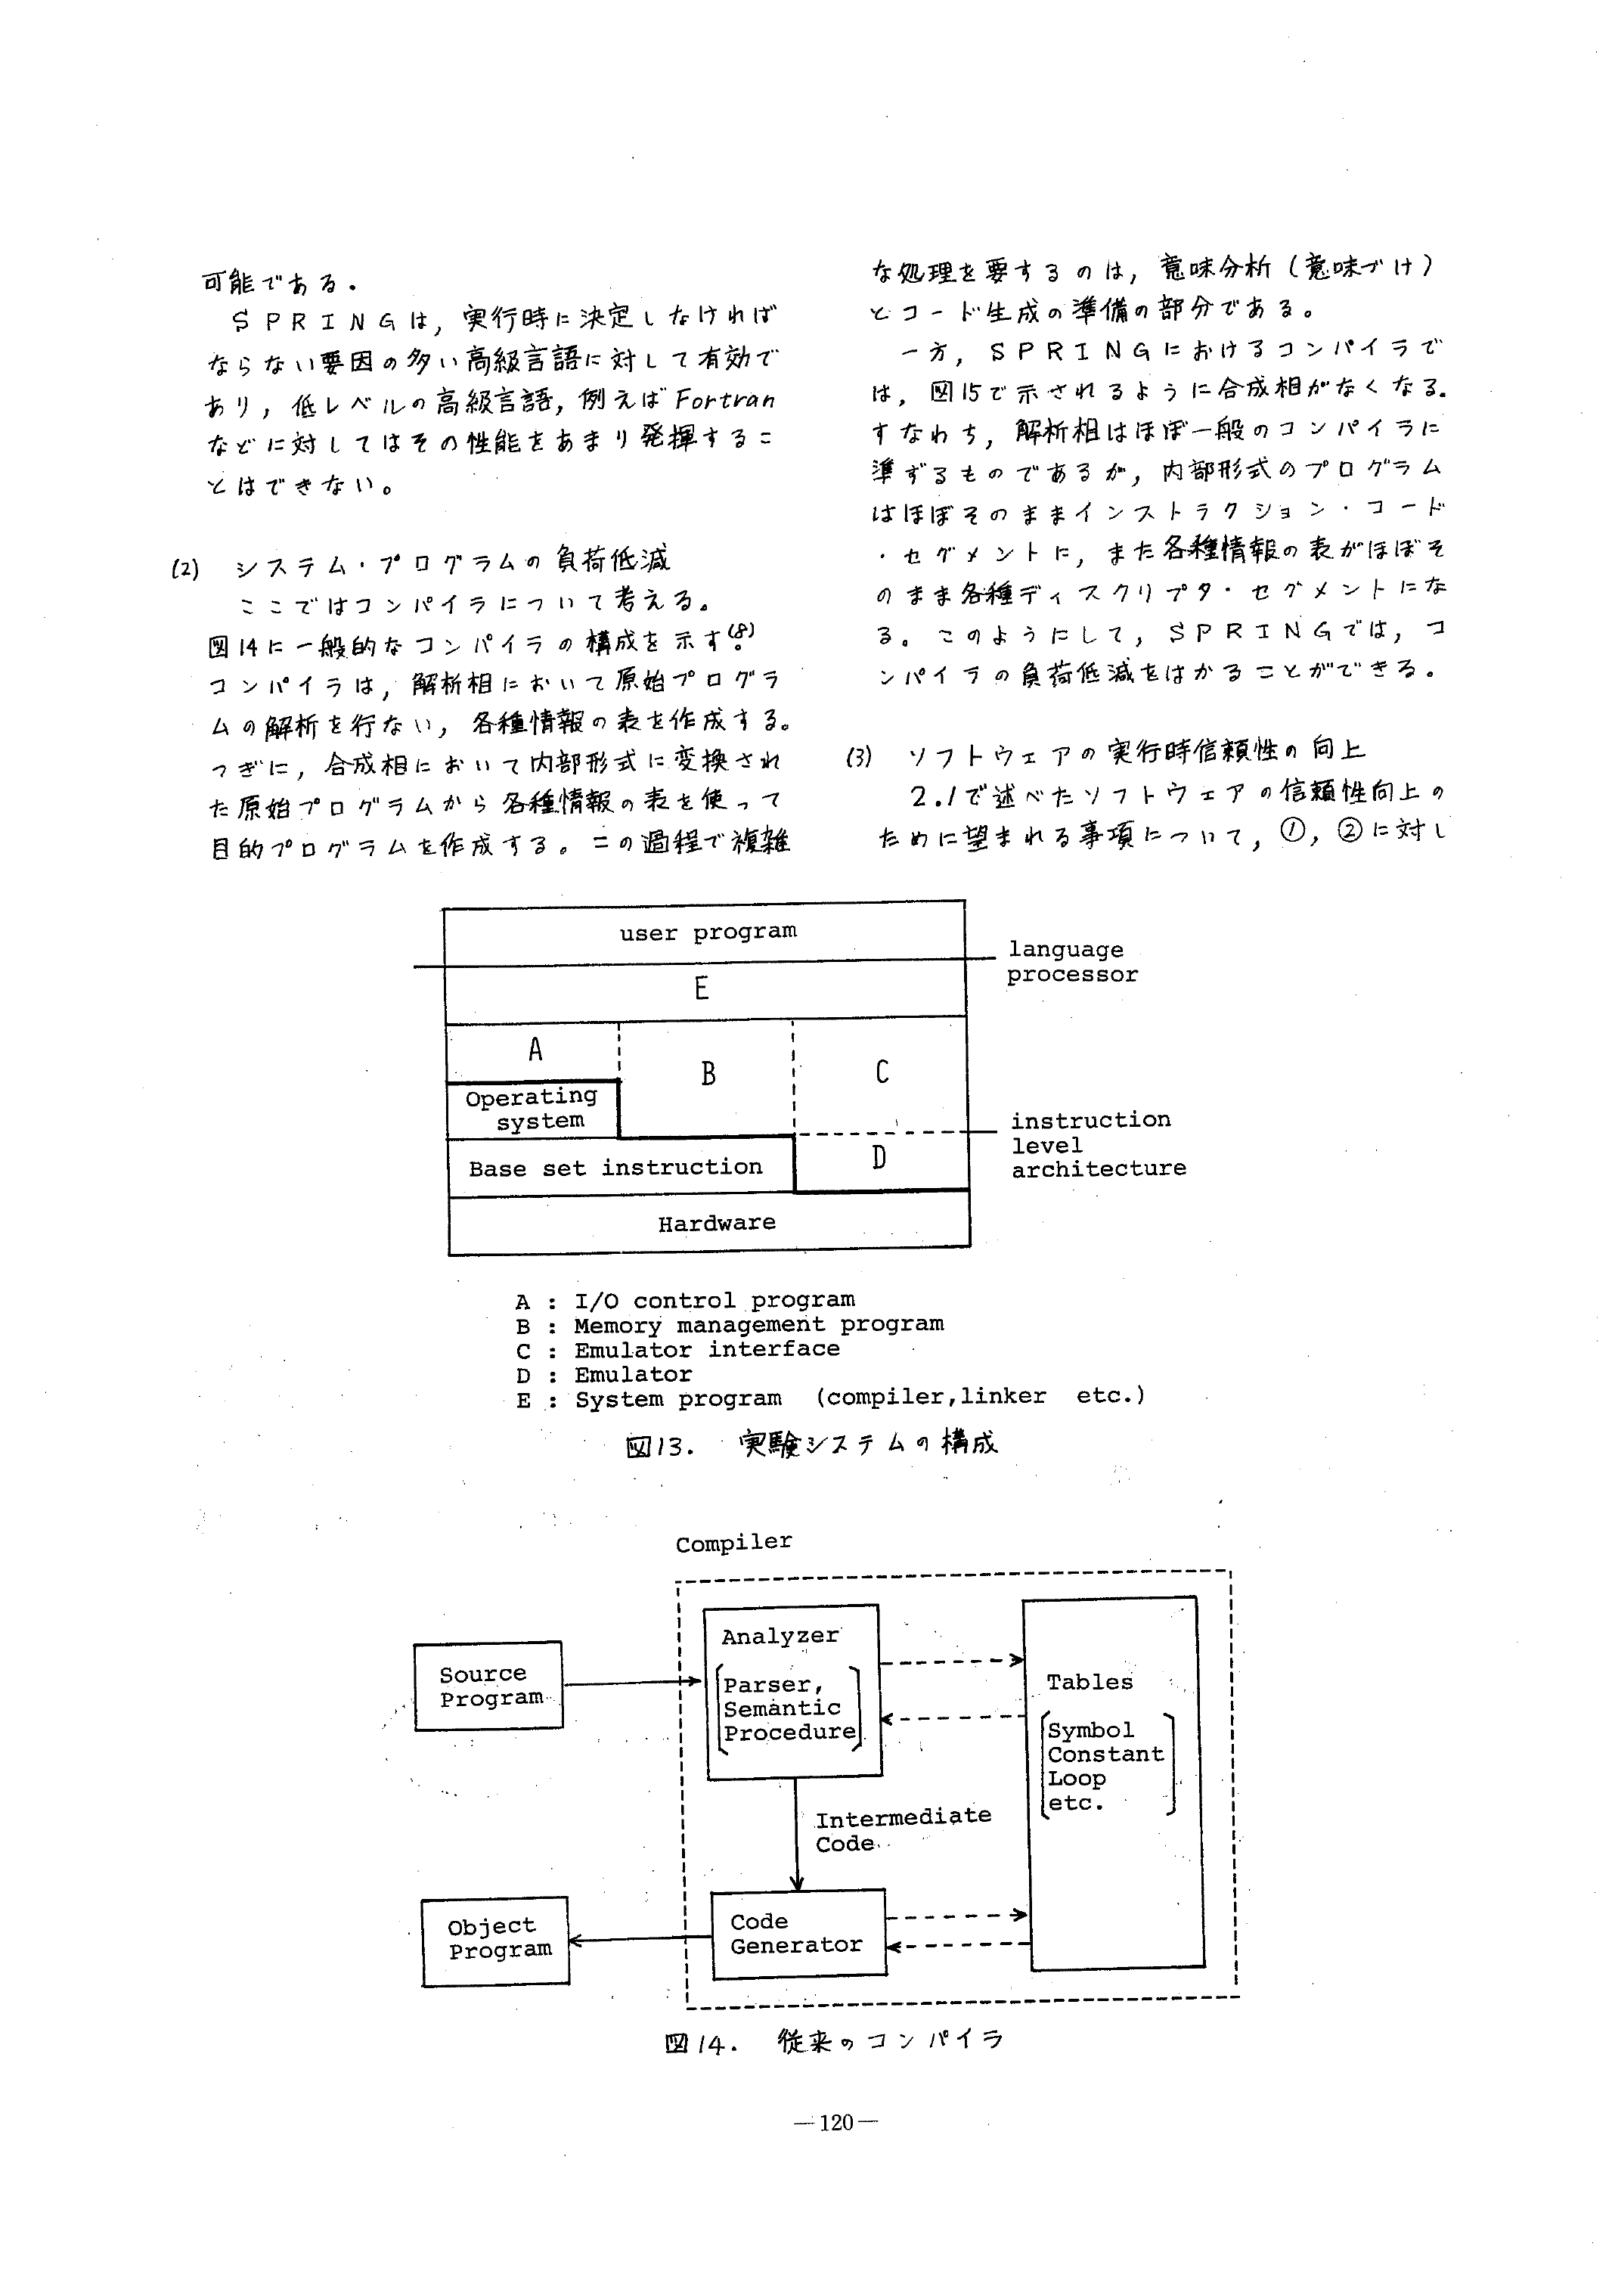 可能である。
SPRINGは，実行時に決定しなければ
ならない要因の多い高級言語に対して有効で
あり，低レベルの高級言語，例えばFortran
などに対してはその性能をあまり発揮するこ
とはできない。
(2) システム・プログラムの負荷低減
ここではコンパイラについて考える。
図14に一般的なコンパイラの構成を示す。(8)
コンパイラは，解析相において原始プログラ
ムの解析を行ない，各種情報の表を作成する。
つぎに，合成相において内部形式に変換され
た原始プログラムから各種情報の表を使って
目的プログラムを作成する。この過程で複雑
な処理を要するのは，意味分析（意味づけ）
とコード生成の準備の部分である。
一方，SPRINGにおけるコンパイラで
は，図15で示されるように合成相がなくなる。
すなわち，解析相はほぼ一般のコンパイラに
準ずるものであるが，内部形式のプログラム
はほぼそのままインストラクション・コード
・セグメントに，また各種情報の表がほぼそ
のまま各種ディスクリプタ・セグメントにな
る。このようにして，SPRINGでは，コ
ンパイラの負荷低減をはかることができる。
(3) ソフトウェアの実行時信頼性の向上
2.1で述べたソフトウェアの信頼性向上の
ために望まれる事項について，①，②に対し
user program
language
processor
E
A
B
C
Operating
system
instruction
level
architecture
Base set instruction
D
Hardware
A : I/O control program
B : Memory management program
C : Emulator interface
D : Emulator
E : System program (compiler,linker etc.)
図13. 実験システムの構成
Compiler
Source
Program
Analyzer
Parser,
Semantic
Procedure
Tables
Symbol
Constant
Loop
etc.
Intermediate
Code
Object
Program
Code
Generator
図14. 従来のコンパイラ
—120—